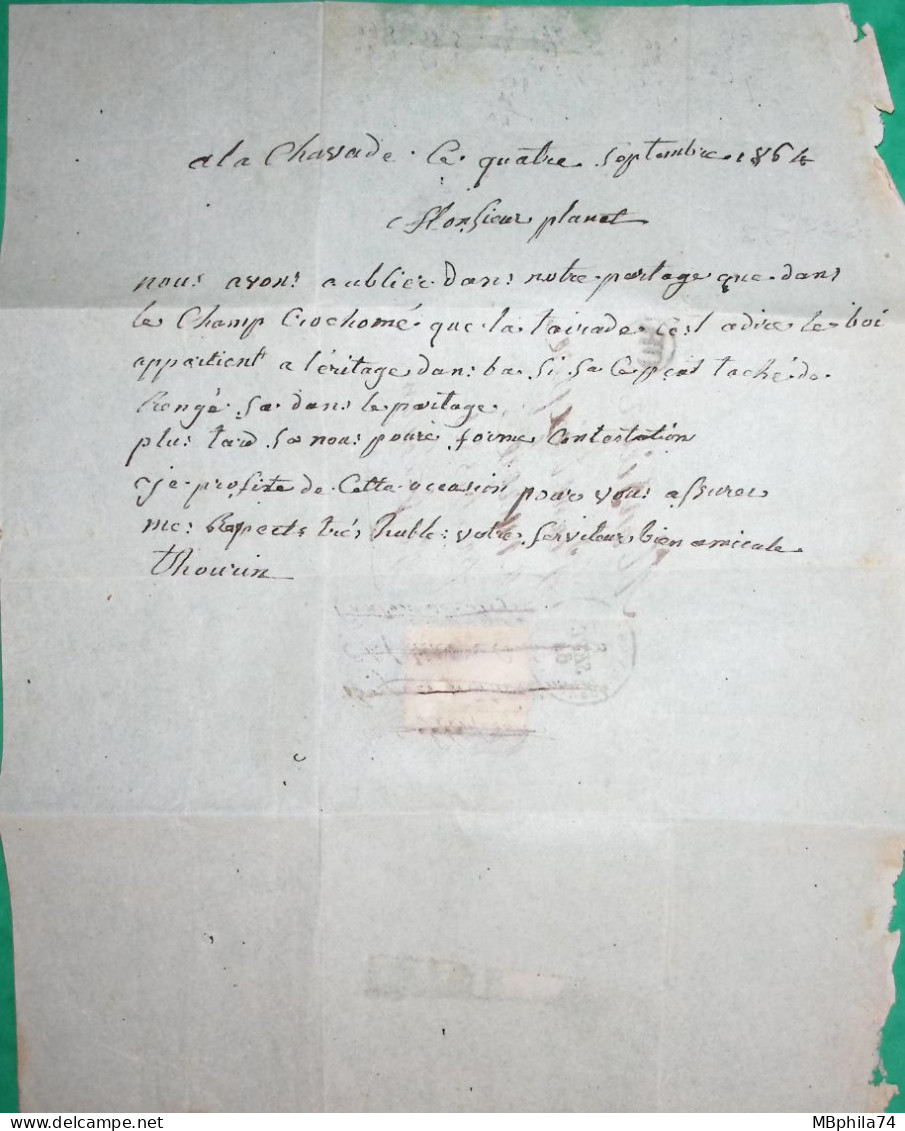 a la Chavade. Ce quatre septembre 1864
Monsieur planet
nous avons aublier dans notre partage que dans
le Champ Crochomé que la tairade cest adire le boi
appartient a léritage dans ba si sa ce peut taché de
Rengé sa dans le partage
plus tard sa nous pouré formé Contestation
je profite de Cette occasion pour vous assurer
mes Respects trés humble votre serviteur bien amicale
Thourin
MBphila74